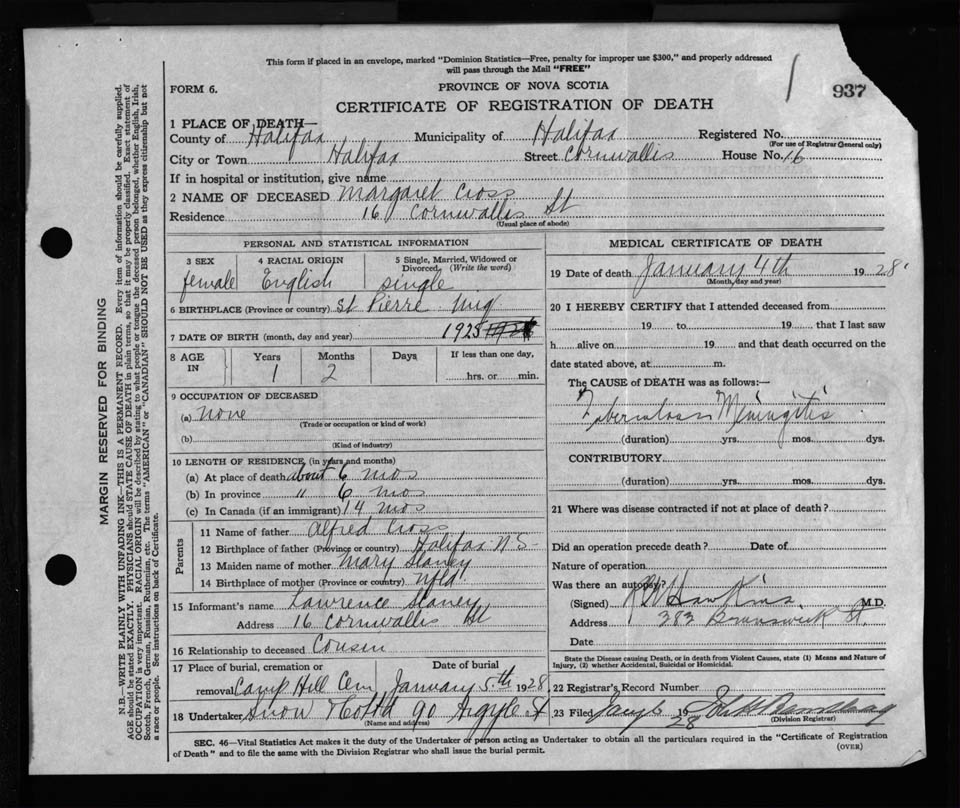 This form if placed in an envelope, marked "Dominion Statistics—Free, penalty for improper use $300," and properly addressed
will pass through the Mail "FREE"
FORM 6.
PROVINCE OF NOVA SCOTIA
937
CERTIFICATE OF REGISTRATION OF DEATH
1 PLACE OF DEATH—
County of Halifax Municipality of Halifax Registered No.
(For use of Registrar General only)
City or Town Halifax Street Cornwallis House No. 16
If in hospital or institution, give name
2 NAME OF DECEASED Margaret Cross
Residence 16 Cornwallis St
(Usual place of abode)
PERSONAL AND STATISTICAL INFORMATION
3 SEX 4 RACIAL ORIGIN 5 Single, Married, Widowed or
Divorced (Write the word)
female English single
6 BIRTHPLACE (Province or country) St Pierre Miq
7 DATE OF BIRTH (month, day and year)
8 AGE IN Years Months Days If less than one day,
1 2 hrs. or min.
9 OCCUPATION OF DECEASED
(a) none
(Trade or occupation or kind of work)
(b)
(Kind of industry)
10 LENGTH OF RESIDENCE (in years and months)
(a) At place of death about 6 mos
(b) In province " 6 mos
(c) In Canada (if an immigrant) 14 mos
Parents
11 Name of father Alfred Cross
12 Birthplace of father (Province or country) Halifax N S
13 Maiden name of mother Mary Slaney
14 Birthplace of mother (Province or country) Nfld
15 Informant's name Lawrence Slaney
Address 16 Cornwallis St
16 Relationship to deceased Cousin
17 Place of burial, cremation or Date of burial
removal Camp Hill Cem January 5th 1928
18 Undertaker Snow & Co Ltd 90 Argyle St
(Name and address)
MEDICAL CERTIFICATE OF DEATH
19 Date of death January 4th 1928
(Month, day and year)
20 I HEREBY CERTIFY that I attended deceased from
19 to 19 that I last saw
h alive on 19 and that death occurred on the
date stated above, at m.
The CAUSE of DEATH was as follows:—
Tubercular Meningitis
(duration) yrs. mos. dys.
CONTRIBUTORY
(duration) yrs. mos. dys.
21 Where was disease contracted if not at place of death?
Did an operation precede death? Date of
Nature of operation
Was there an autopsy?
(Signed) Hawkins M.D.
Address 383 Brunswick St
Date
State the Disease causing Death, or in death from Violent Causes, state (1) Means and Nature of
Injury, (2) whether Accidental, Suicidal or Homicidal.
22 Registrar's Record Number
23 Filed 19 28
(Division Registrar)
SEC. 46—Vital Statistics Act makes it the duty of the Undertaker or person acting as Undertaker to obtain all the particulars required in the "Certificate of Registration
of Death" and to file the same with the Division Registrar who shall issue the burial permit.
(OVER)
MARGIN RESERVED FOR BINDING
N.B.—WRITE PLAINLY WITH UNFADING INK—THIS IS A PERMANENT RECORD. Every item of information should be carefully supplied.
AGE should be stated EXACTLY. PHYSICIANS should STATE CAUSE OF DEATH in plain terms, so that it may be properly classified. Exact statement of
OCCUPATION is very important. RACIAL ORIGIN will be described by stating to what people or tongue the deceased person belonged, whether English, Irish,
Scotch, French, German, Russian, Ruthenian, etc. The terms "AMERICAN" or "CANADIAN" SHOULD NOT BE USED as they express citizenship but not
a race or people. See instructions on back of Certificate.